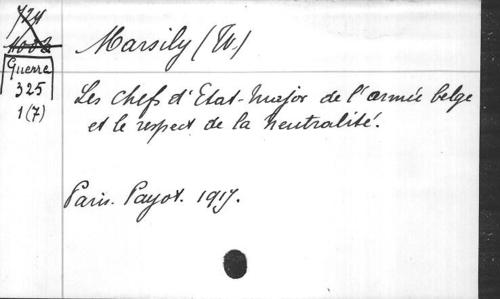 724
Guerre
325
1(7)
Marsily (W.)
Les chefs d'Etat-major de l'armée belge
et le respect de la neutralité.
Paris. Payot. 1917.